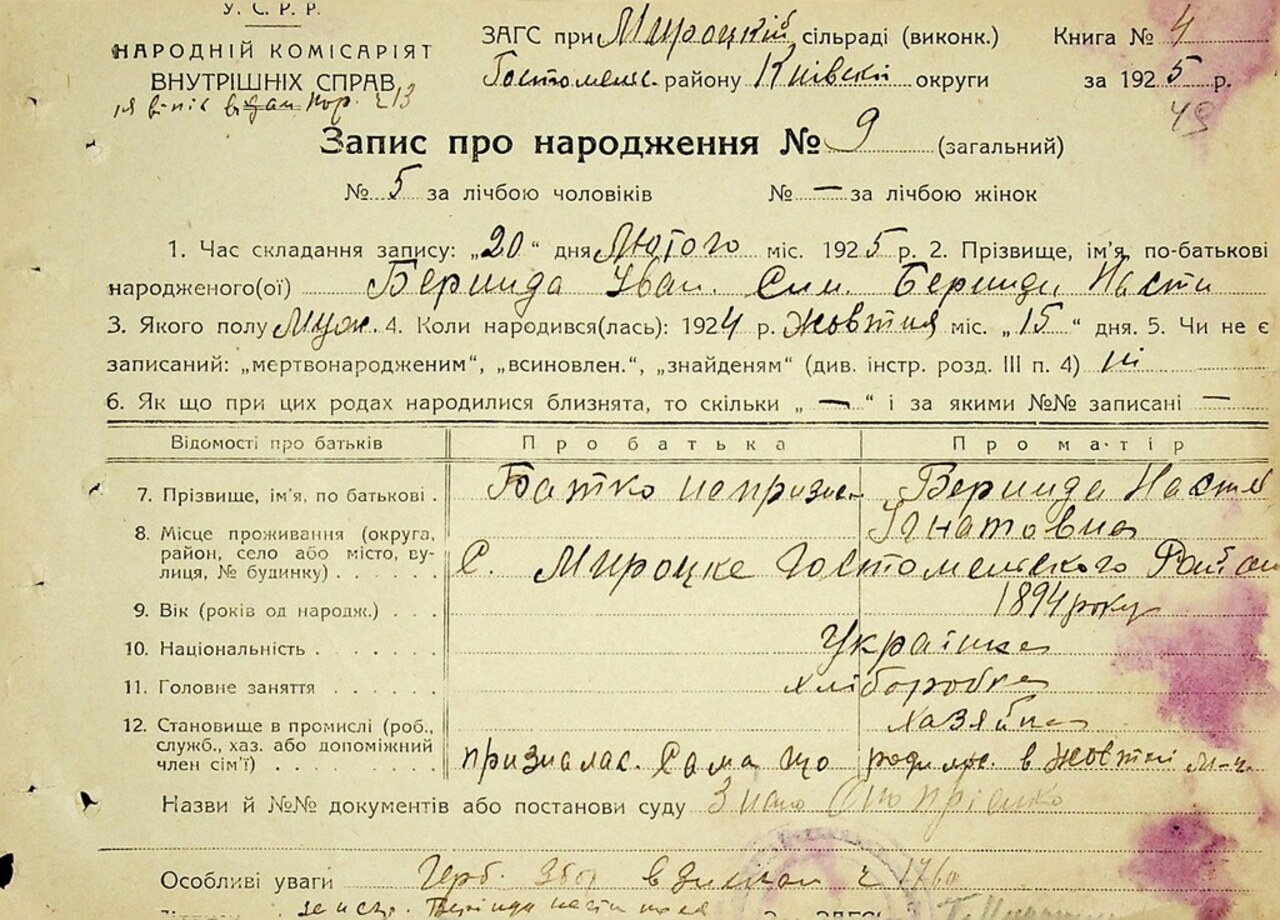 У. С. Р. Р.
НАРОДНІЙ КОМІСАРІЯТ
ВНУТРІШНІХ СПРАВ
ЗАГС при Мироцкій сільраді (виконк.) Книга № 4
Гостомельс. району Київскій округи за 1925 р.
49
Запис про народження № 9 (загальний)
№ 5 за лічбою чоловіків № — за лічбою жінок
1. Час складання запису: „20“ дня Лютого міс. 1925 р. 2. Прізвище, ім'я, по-батькові
народженого(ої) Беринда Уван. Син. Беринди Насти
3. Якого полу Муж. 4. Коли народився(лась): 1924 р. Жовтня міс. „15“ дня. 5. Чи не є
записаний: „мертвонародженим“, „всиновлен.“, „знайденям“ (див. інстр. розд. III п. 4) ні
6. Як що при цих родах народилися близнята, то скільки „—“ і за якими №№ записані —
Відомості про батьків Про батька Про матір
7. Прізвище, ім'я, по батькові . Батко непризн. Беринда Настя
Ігнатовна
8. Місце проживання (округа,
район, село або місто, ву-
лиця, № будинку) . . . . . . С. Мироцке Гостомельского Район
9. Вік (років од народж.) . . . 1894 року
10. Національність . . . . . . . Українка
11. Головне заняття . . . . . . хліборобка
12. Становище в промислі (роб., хазяйка
служб., хаз. або допоміжний
член сім'ї) . . . . . . . . . . призналас. Сама що родилос. в жовтні м-ці
Назви й №№ документів або постанови суду
Особливі уваги Герб. Збор